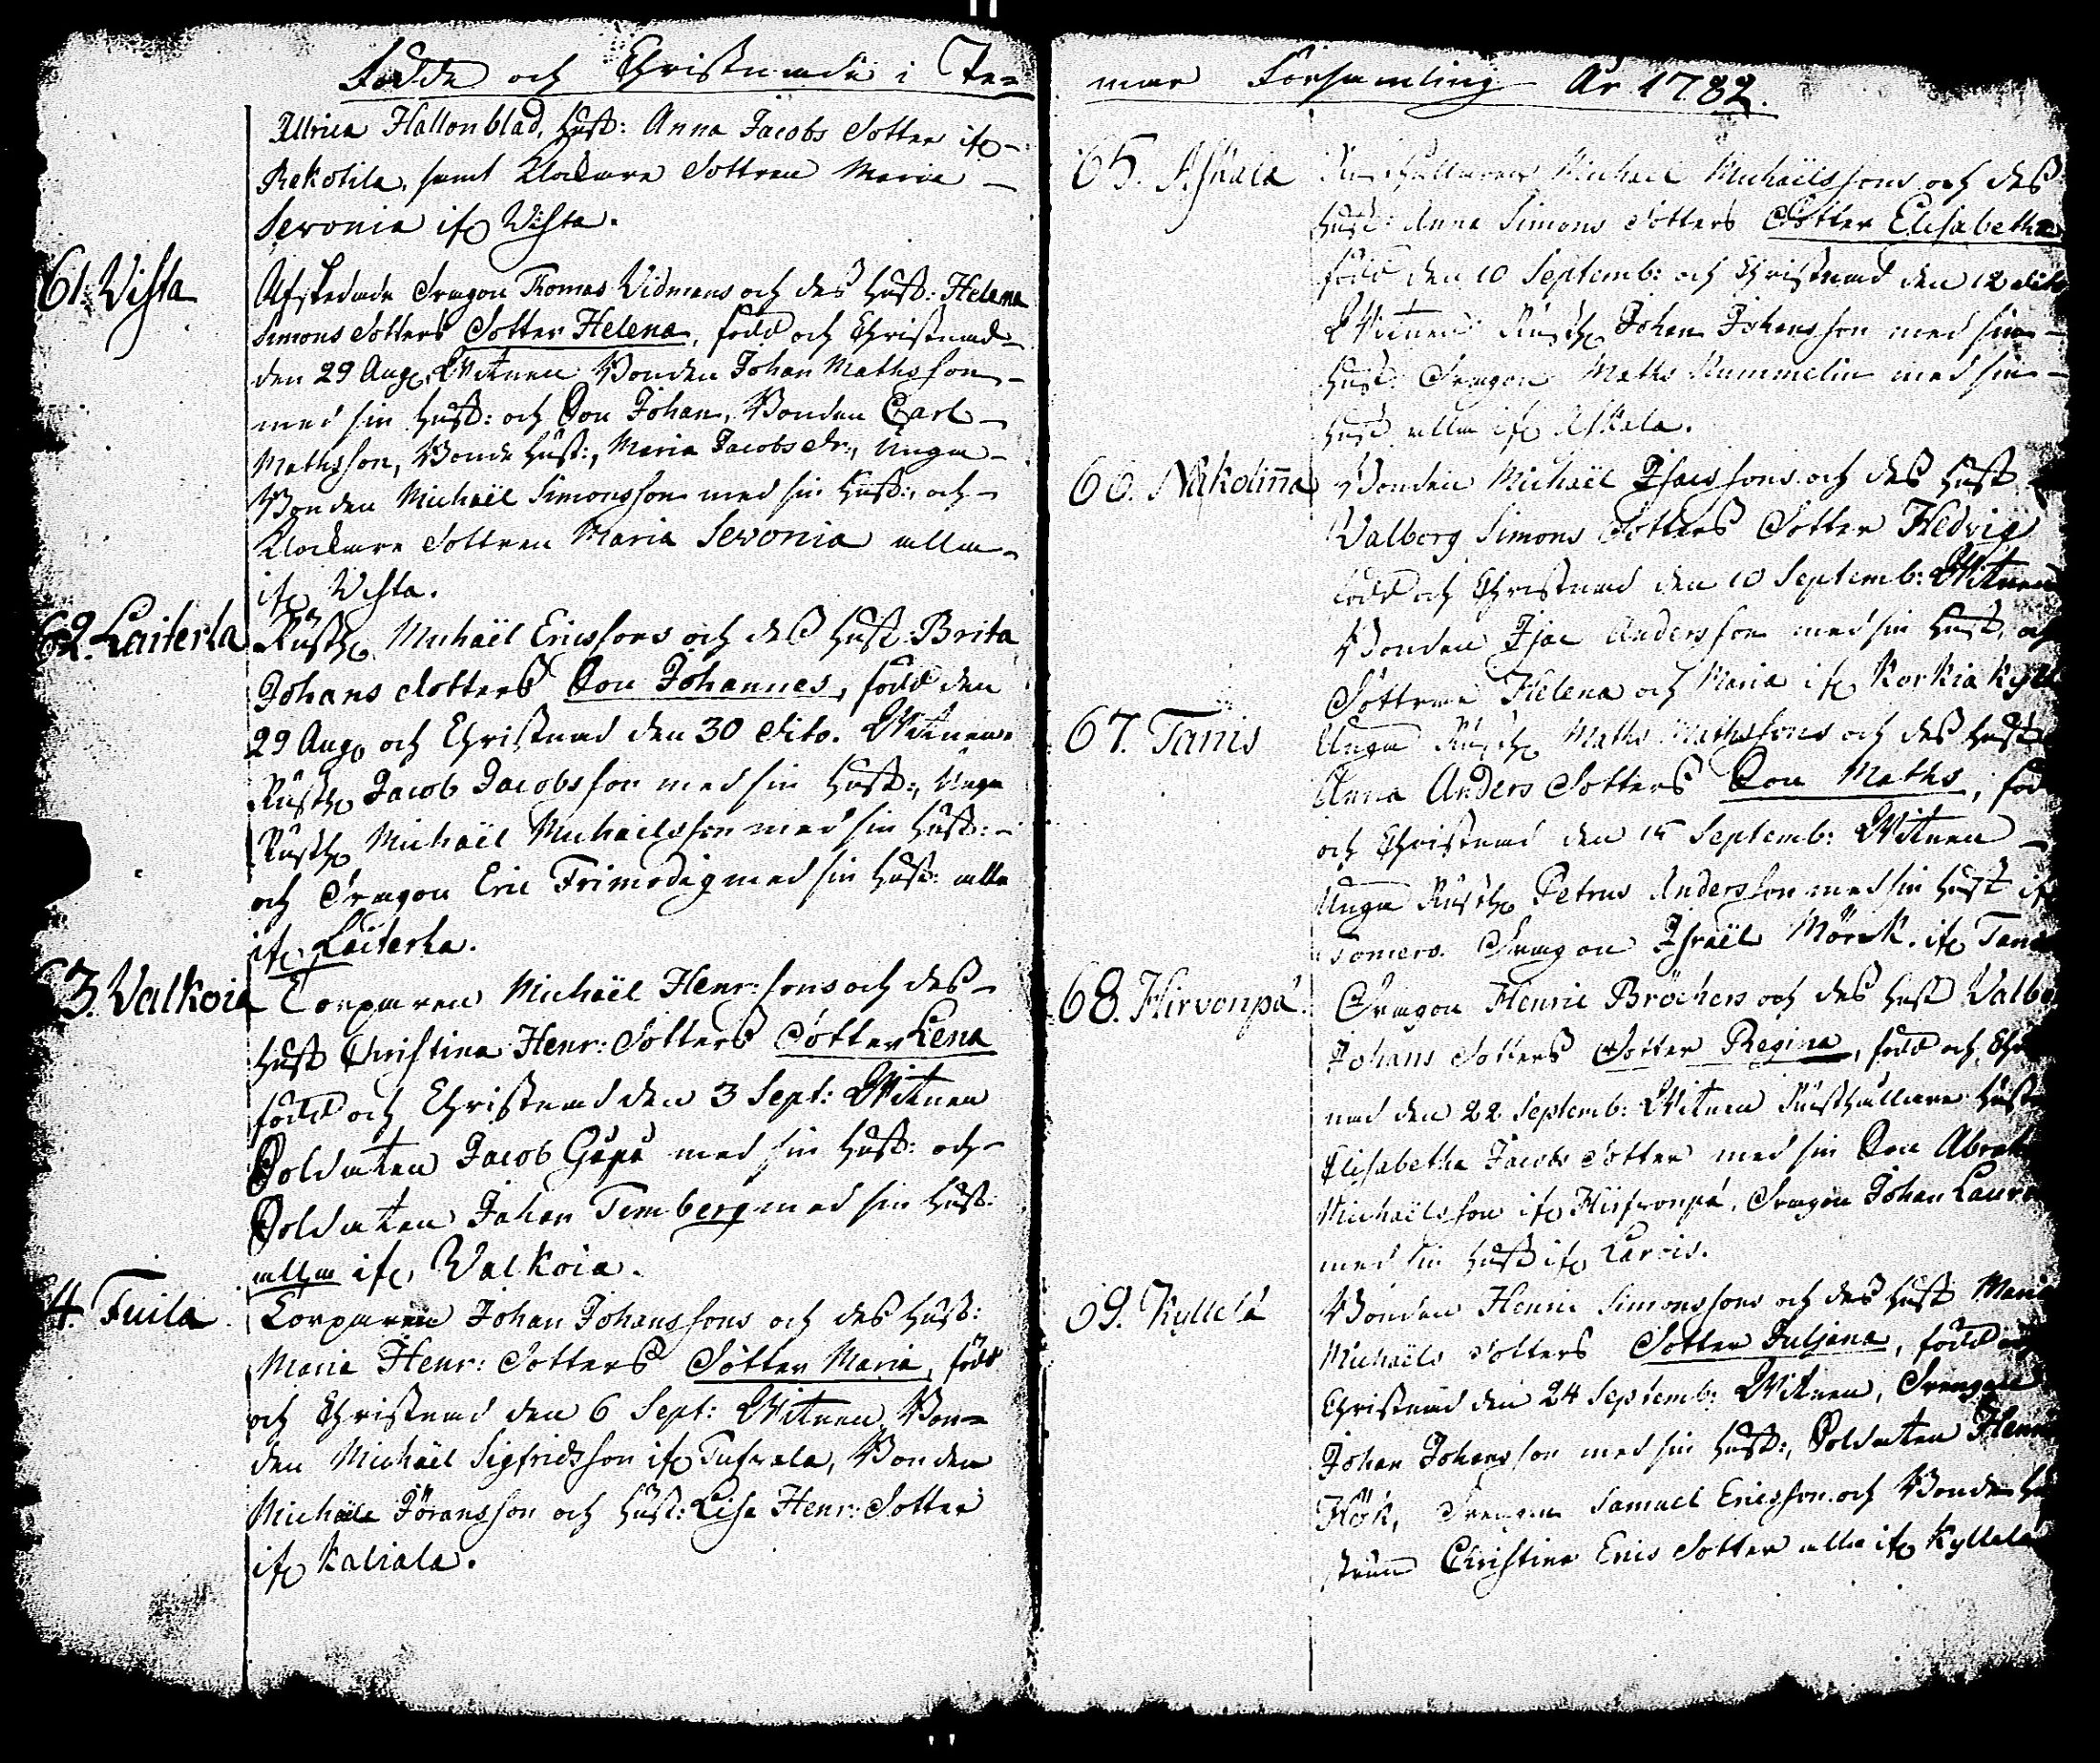 Födde och Christnade i Pe=
Ullrica Hallonblad, Hust: Anna Jacobs Dotter ifr.
Rekotila, samt Klockare Dottren Maria
Sevonia ifr. Vista.
61. Vista Afskedade Dragon Thomas Vidmans och des Hust: Helena
Simons Dotters Dotter Helena, född och Christnad
den 29 Aug. Witnen Bonden Johan Mathsson
med sin Hust: och Son Johan, Bonden Carl
Mathsson, Bonde Hust:, Maria Jacobs dr., Unga
Bonden Michaël Simonsson med sin Hust:, och
Klockare Dottren Maria Sevonia alla
ifr. Vista.
62. Laiterla Rusth. Michaël Ericssons och des Hust Brita
Johans dotters Son Johannes, född den
29 Aug. och Christnad den 30 dito. Witnen
Rusth. Jacob Jacobsson med sin Hust:, Unga
Rusth. Michaël Michaelsson med sin Hust:
och Dragon Eric Frimodig med sin Hust: alla
ifr. Laiterla.
3. Valkoia Torparen Michaël Henr: sons och des
Hust Christina Henr: Dotters Dotter Lena
född och Christnad den 3 Sept: Witnen
Soldaten Jacob med sin Hust: och
Soldaten Johan Temberg med sin Hust:
alla ifr. Valkoia.
4. Tuila Torparen Johan Johanssons och des Hust:
Maria Henr: Dotters Dotter Maria, född
och Christnad den 6 Sept: Witnen, Bon=
den Michaël Sigfridsson ifr. Bonden
Michaël Jöransson och Hust: Lisa Henr: Dotter
ifr. Kaliala.
mar Församling År 1782.
65. Askala Rusthållaren Michael Michaëlssons och des
Hust: Anna Simons Dotters Dotter Elisabetha
född den 10 Septemb: och Christnad den 12 dito
Witnen: Rusth. Johan Johansson med sin
Hust: Dragon Maths Rummelin med sin
Hust alla ifr. Askala.
66. Näkolinna Bonden Michaël Isacssons och des Hust
Valborg Simons Dotters Dotter Hedvig
född och Christnad den 10 Septemb: Witnen
Bonden Isac Andersson med sin Hust, och
Dottrene Helena och Maria ifr. Korkia Kyl
67. Tanis Unga Rusth. Maths Mathssons och des Hust
Anna Anders Dotters Son Maths, föd
och Christnad den 15 Septemb: Witnen
Unga Rusth. Petrus Andersson med sin Hust if
Somero. Dragon Israël Mörck. ifr. Tanis
68. Hirvonpä. Dragon Henric Bröchers och des Hust Valbo
Johans Dotters Dotter Regina, född och Chr
nad den 22 Septemb: Witnen Rusthållare Hust
Elisabetha Jacobs Dotter med sin Son Abrah
Michaëlsson ifr. Dragon Johan Laur
med sin Hust ifr. Larois.
69. Kyllelä Bonden Henric Simonssons och des Hust Maria
Michaëls Dotters Dotter Juliana, född och
Christnad den 24 Septemb: Witnen, Drengen
Johan Johansson med sin Hust:, Soldaten Henric
Hök, Drengen Samuel Ericsson och Bonde Hu
strun Christina Erics Dotter alla ifr. Kyllelä